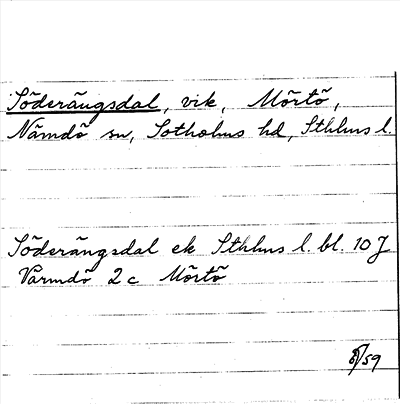 Söderängsdal, vik, Mörtö,
Nämdö sn, Sotholms hd, Sthlms l.
Söderängsdal ek Sthlms l. bl. 10 J
Värmdö 2 c Mörtö
8/59